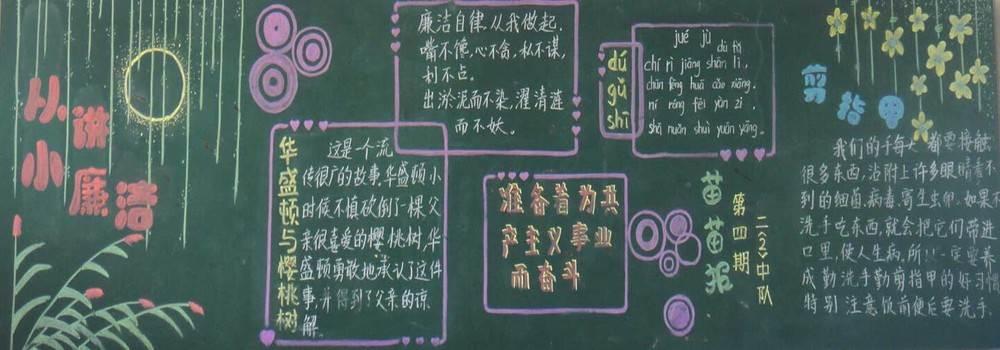 小小
讲廉洁
廉洁自律,从我做起.
嘴不馋,心不贪,私不谋,
利不占.
出淤泥而不染,濯清涟
而不妖.
华盛顿与樱桃树
这是一个流
传很广的故事,华盛顿小
时候不慎砍倒了一棵父
亲很喜爱的樱桃树,华
盛顿勇敢地承认了这件
事,并得到了父亲的谅
解.
准备着为共
产主义事业
而奋斗
dú
gǔ
shī
jué jù
dù fǔ
chí rì jiāng shān lì,
chūn fēng huā cǎo xiāng.
ní róng fēi yàn zi,
shā nuǎn shuì yuān yāng.
苗苗报
第四期
二(2)中队
剪指甲
我们的手每天都要接触
很多东西,沾附上许多眼睛看不
到的细菌,病毒,寄生虫卵.如果不
洗手吃东西,就会把它们带进
口里,使人生病,所以一定要养
成勤洗手勤剪指甲的好习惯
特别注意饭前便后要洗手.